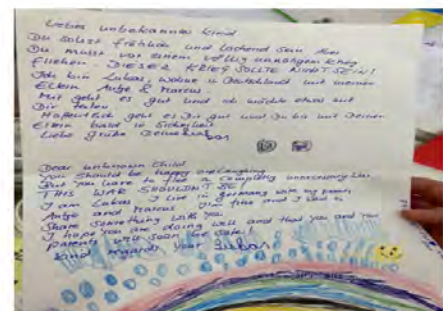 Liebes unbekanntes Kind
Du sollst fröhlich und lachend sein. Aber
Du musst vor einem völlig unnötigen Krieg
fliehen. DIESER KRIEG SOLLTE NICHT SEIN!
Ich bin Lukas, wohne in Deutschland mit meinen
Eltern Antje & Marcus.
Mir geht es gut und ich möchte etwas mit
Dir teilen.
Hoffentlich geht es Dir gut und Du bist mit Deinen
Eltern bald in Sicherheit
Liebe Grüße Dein Lukas
Dear unknown Child
You should be happy and laughing
But you have to flee a completly unnecessary War
THIS WAR SHOULDN'T BE
I am Lukas I live in Germany with my parents
Antje and Marcus. I'm fine and I want to
Share something with you
I hope you are doing well and that you and your
parents will soon be safe!
kind regards your Lukas